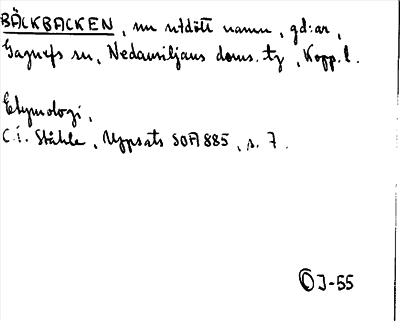 BÄCKBACKEN, nu utdött namn, gd:ar,
Gagnefs sn, Nedansiljans doms. tg, Kopp. l.
Etymologi,
C.I. Ståhle, Uppsats SOFI 885, s. 7.
OJ-55